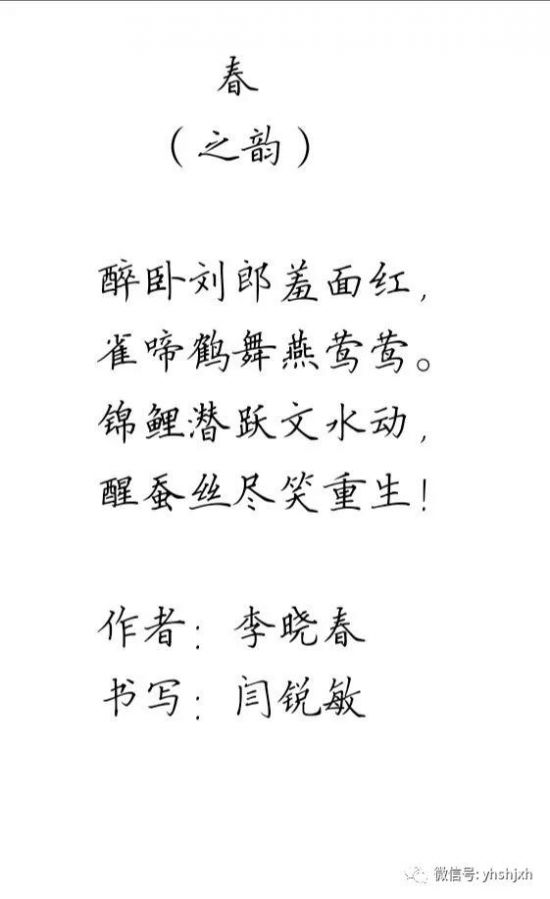 春
（之韵）
醉卧刘郎羞面红，
雀啼鹤舞燕莺莺。
锦鲤潜跃文水动，
醒蚕丝尽笑重生！
作者：李晓春
书写：闫锐敏
微信号: yhshjxh